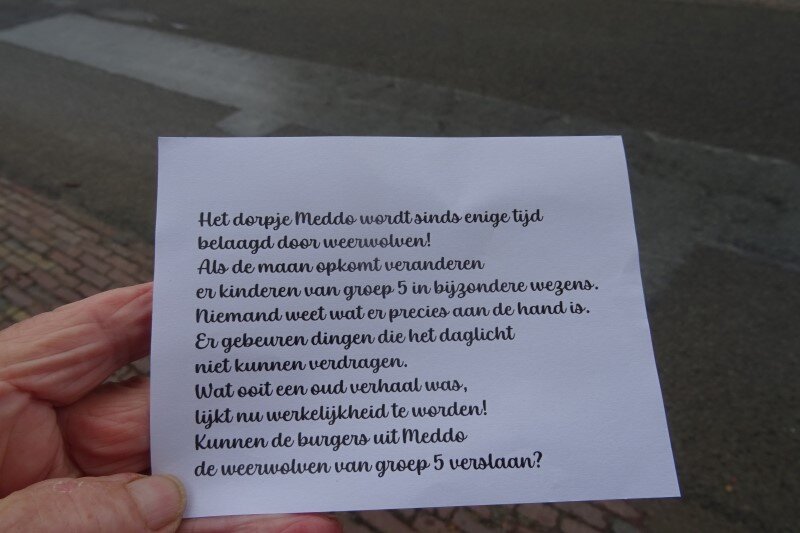 Het dorpje Meddo wordt sinds enige tijd
belaagd door weerwolven!
Als de maan opkomt veranderen
er kinderen van groep 5 in bijzondere wezens.
Niemand weet wat er precies aan de hand is.
Er gebeuren dingen die het daglicht
niet kunnen verdragen.
Wat ooit een oud verhaal was,
lijkt nu werkelijkheid te worden!
Kunnen de burgers uit Meddo
de weerwolven van groep 5 verslaan?